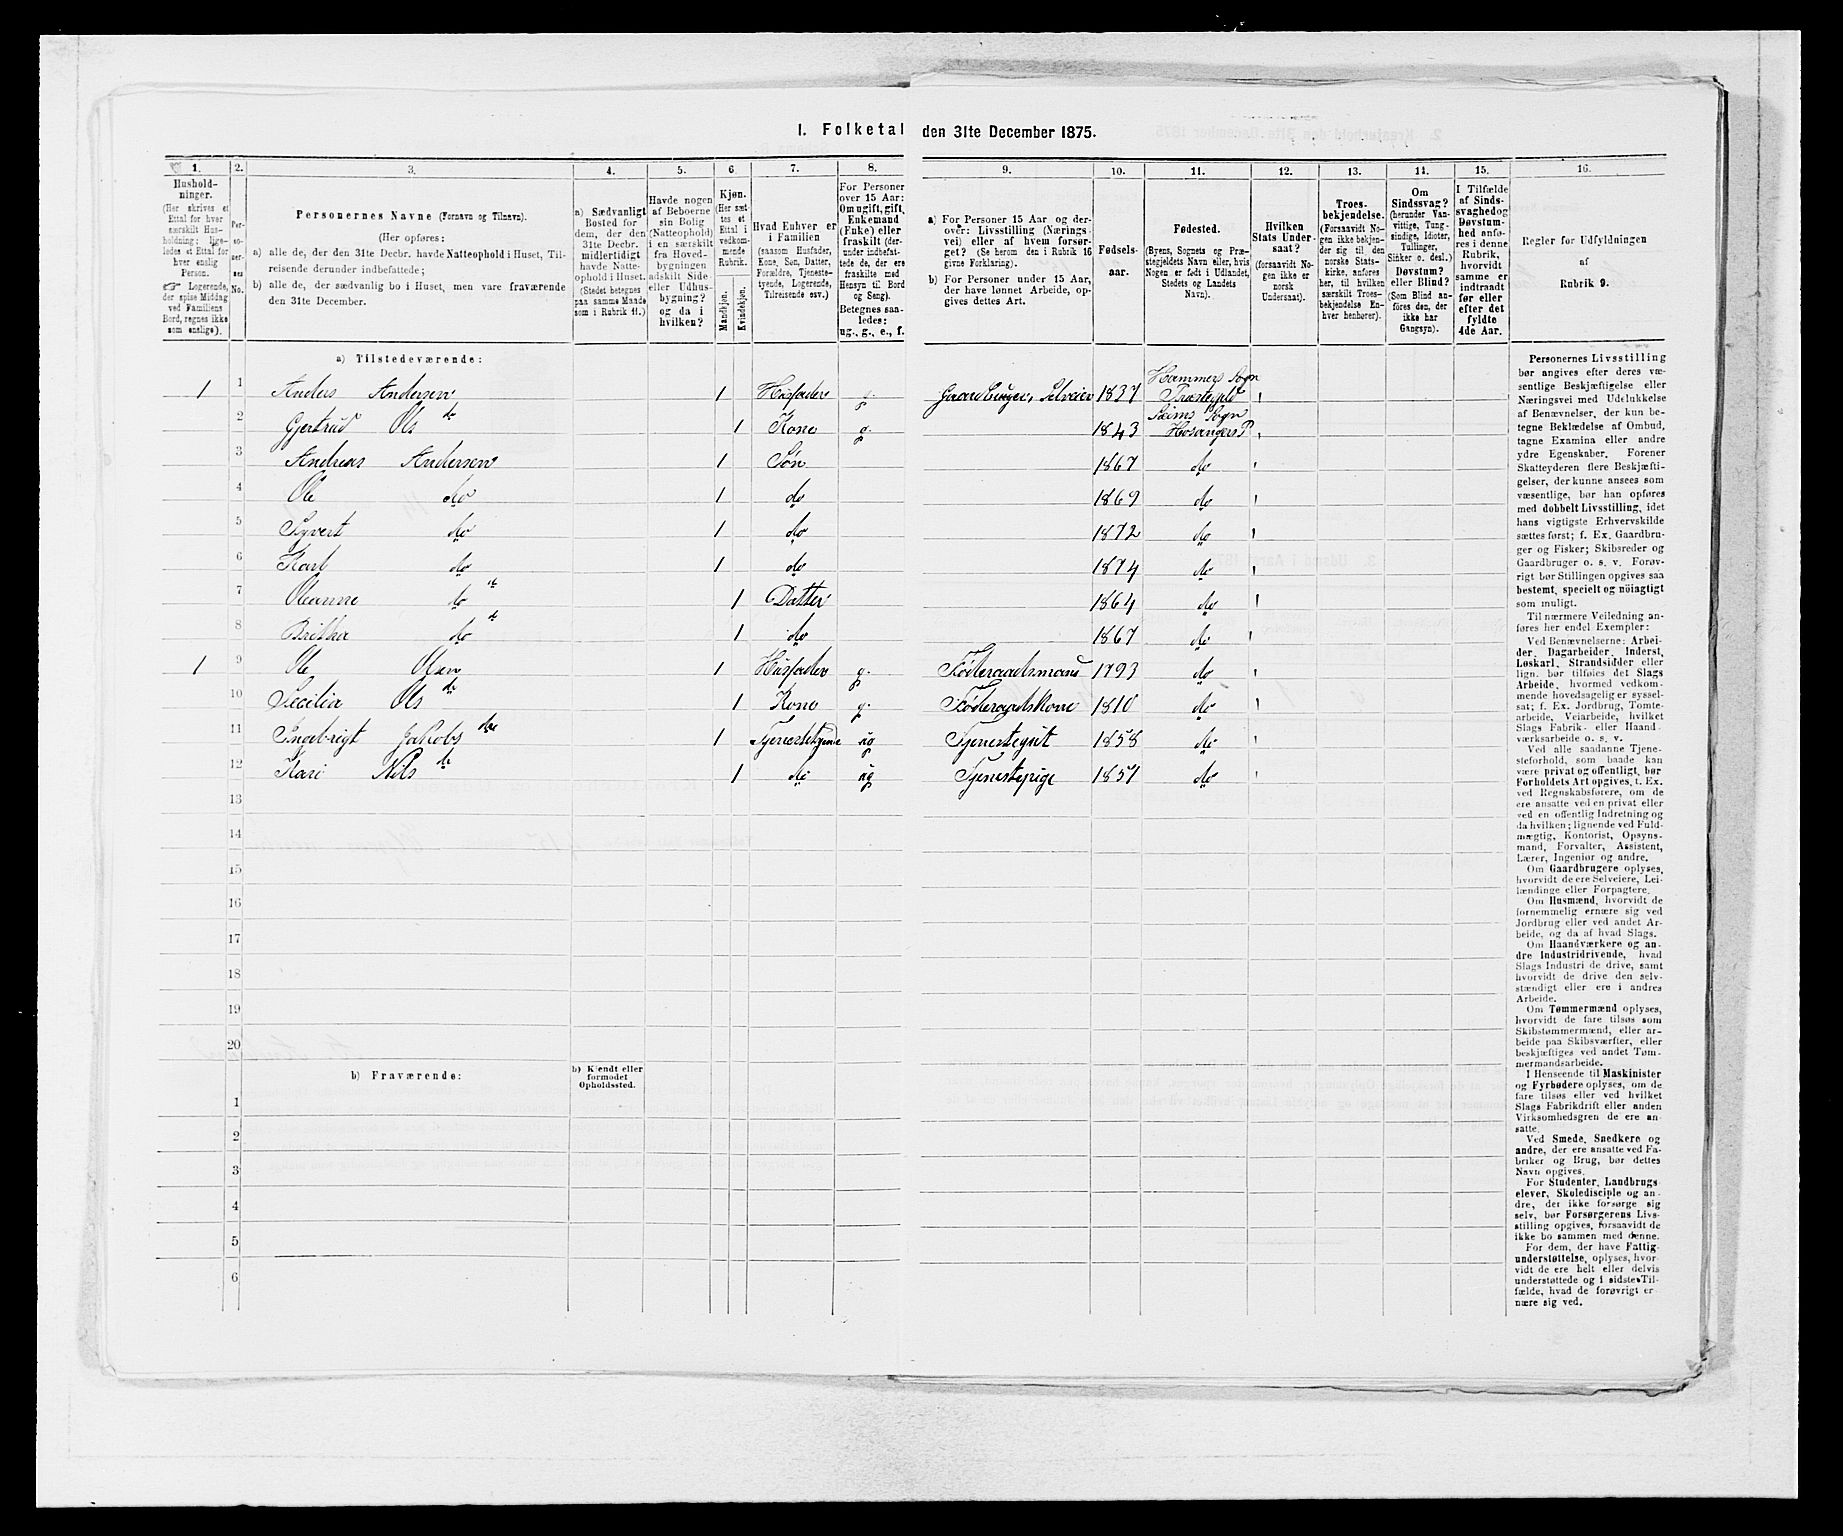 1. Folketal den 31te December 1875.
1. 2. 3. 4. 5. 6. 7. 8. 9. 10. 11. 12. 13. 14. 15. 16.
Hushold-
ninger.
(Her skrives et
Ettal for hver
særskilt Hus-
holdning; lige-
ledes et Ettal for
hver enslig
Person.
☞ Logerende,
der spise Middag
ved Familiens
Bord, regnes ikke
som enslige).
Per-
so-
ner-
nes
No.
Personernes Navne (Fornavn og Tilnavn).
(Her opføres:
a) alle de, der den 31te Decbr. havde Natteophold i Huset, Til-
reisende derunder indbefattede;
b) alle de, der sædvanlig bo i Huset, men vare fraværende
den 31te December.
a) Sædvanligt
Bosted for
dem, der den
31te Decbr.
midlertidigt
havde Natte-
ophold i Huset.
(Stedet betegnes
paa samme Maade
som i Rubrik 11.)
Havde nogen
af Beboerne
sin Bolig
(Natteophold)
i en særskilt
fra Hoved-
bygningen
adskilt Side-
eller Udhus-
bygning?
og da i
hvilken?
Kjøn.
(Her sæt-
tes et
Ettal i
vedkom-
mende
Rubrik.
Mandkjøn.
Kvindekjøn.
Hvad Enhver er
i Familien
(saasom Husfader,
Kone, Søn, Datter,
Forældre, Tjeneste-
tyende, Logerende,
Tilreisende osv.)
For Personer
over 15 Aar:
Om ugift, gift,
Enkemand
(Enke) eller
fraskilt (der-
under indbefat-
tede de, der ere
fraskilte med
Hensyn til Bord
og Seng).
Betegnes saa-
ledes:
ug., g., e., f.
a) For Personer 15 Aar og der-
over: Livsstilling (Nærings-
vei) eller af hvem forsør-
get? (Se herom den i Rubrik 16
givne Forklaring).
b) For Personer under 15 Aar,
der have lønnet Arbeide, op-
gives dettes Art.
Fødsels-
aar.
Fødested.
(Byens, Sognets og Præ-
stegjeldets Navn eller, hvis
Nogen er født i Udlandet,
Stedets og Landets
Navn).
Hvilken
Stats Under-
saat?
(forsaavidt No-
gen ikke er
norsk
Undersaat).
Troes-
bekjendelse.
(Forsaavidt No-
gen ikke bekjen-
der sig til den
norske Stats-
kirke, anføres
her, til hvilken
særskilt Troes-
bekjendelse En-
hver henhører).
Om
Sindssvag?
(herunder Van-
vittige, Tung-
sindige, Idioter,
Tullinger,
Sinker o. desl.)
Døvstum?
eller Blind?
(Som Blind an-
føres den, der
ikke har
Gangsyn).
I Tilfælde
af Sinds-
svaghed og
Døvstum-
hed anfø-
res i denne
Rubrik,
hvorvidt
samme er
indtraadt
før eller
efter det
fyldte
4de Aar.
Regler for Udfyldningen
af
Rubrik 9.
a) Tilstedeværende:
1 1 Anders Andersen 1 Husfader g. Gaardbruger, Selveier 1837 Hammers Sogn Præstegjeld
2 Gjertrud Ols dr 1 Kone g. 1843 Seims Sogn Hosangers P.
3 Andreas Andersen 1 Søn 1867 do
4 Ole do 1 do 1869 do
5 Syvert do 1 do 1872 do
6 Karl do 1 do 1874 do
7 Oleanne do dr 1 Datter 1864 do
8 Britha do dr 1 do 1867 do
1 9 Ole Olsen 1 Husfader g. Føderaadsmand 1793 do
10 Secilia Ols dr 1 Kone g. Føderaadskone 1810 do
11 Ingebrigt Jakobs 1 Tjenestetyende ug Tjenestegut 1858 do
12 Kari Nils dr 1 do ug Tjenestepige 1851 do
13
14
15
16
17
18
19
20
b) Fraværende:
b) Kjendt eller
formodet
Opholdssted.
1
2
3
4
5
6
Personernes Livsstilling
bør angives efter deres væ-
sentlige Beskjæftigelse eller
Næringsvei med Udelukkelse
af Benævnelser, der kun be-
tegne Beklædelse af Ombud,
tagne Examina eller andre
ydre Egenskaber. Forener
Skatteyderen flere Beskjæfti-
gelser, der kunne ansees som
væsentlige, bør han opføres
med dobbelt Livsstilling, idet
hans vigtigste Erhvervskilde
sættes først; f. Ex. Gaardbru-
ger og Fisker; Skibsreder og
Gaardbruger o. s. v. Forøv-
rigt bør Stillingen opgives saa
bestemt, specielt og nöiagtigt
som muligt.
Til nærmere Veiledning an-
føres her endel Exempler:
Ved Benævnelserne: Arbei-
der, Dagarbeider, Inderst,
Løskarl, Strandsidder eller
lign. bør tilføies det Slags
Arbeide, hvormed vedkom-
mende hovedsagelig er syssel-
sat; f. Ex. Jordbrug, Tomte-
arbeide, Veiarbeide, hvilket
Slags Fabrik- eller Haand-
værksarbeide o. s. v.
Ved alle saadanne Tjene-
steforhold, som baade kan
være privat og offentligt, bør
Forholdets Art opgives, t. Ex.
ved Regnskabsførere, om de
ere ansatte ved en privat eller
ved en offentlig Indretning og
da hvilken; lignende ved Fuld-
mægtig, Kontorist, Opsyns-
mand, Forvalter, Assistent,
Lærer, Ingeniør og andre.
Om Gaardbrugere oplyses,
hvorvidt de ere Selveiere, Lei-
lændinge eller Forpagtere.
Om Husmænd, hvorvidt de
fornemmelig ernære sig ved
Jordbrug eller ved andet Ar-
beide, og da af hvad Slags.
Om Haandværkere og an-
dre Industridrivende, hvad
Slags Industri de drive, samt
hvorvidt de drive den selv-
stændigt eller ere i andres
Arbeide.
Om Tømmermænd oplyses,
hvorvidt de fare tilsøs som
Skibstømmermænd, eller ar-
beide paa Skibsværfter, eller
beskjæftiges ved andet Tøm-
mermandsarbeide.
I Henseende til Maskinister
og Fyrbødere oplyses, om de
fare tilsøs eller ved hvilket
Slags Fabrikdrift eller anden
Virksomhedsgren de ere an-
satte.
Ved Smede, Snedkere og
andre, der ere ansatte ved Fa-
briker og Brug, bør dettes
Navn opgives.
For Studenter, Landbrugs-
elever, Skoledisciple og an-
dre, der ikke forsørge sig
selv, bør Forsørgerens Livs-
stilling opgives, forsaavidt de
ikke bo sammen med denne.
For dem, der have Fattig-
understøttelse, oplyses, hvor-
vidt de ere helt eller delvis
understøttede og i sidste Til-
fælde, hvad de forøvrigt er-
nære sig ved.